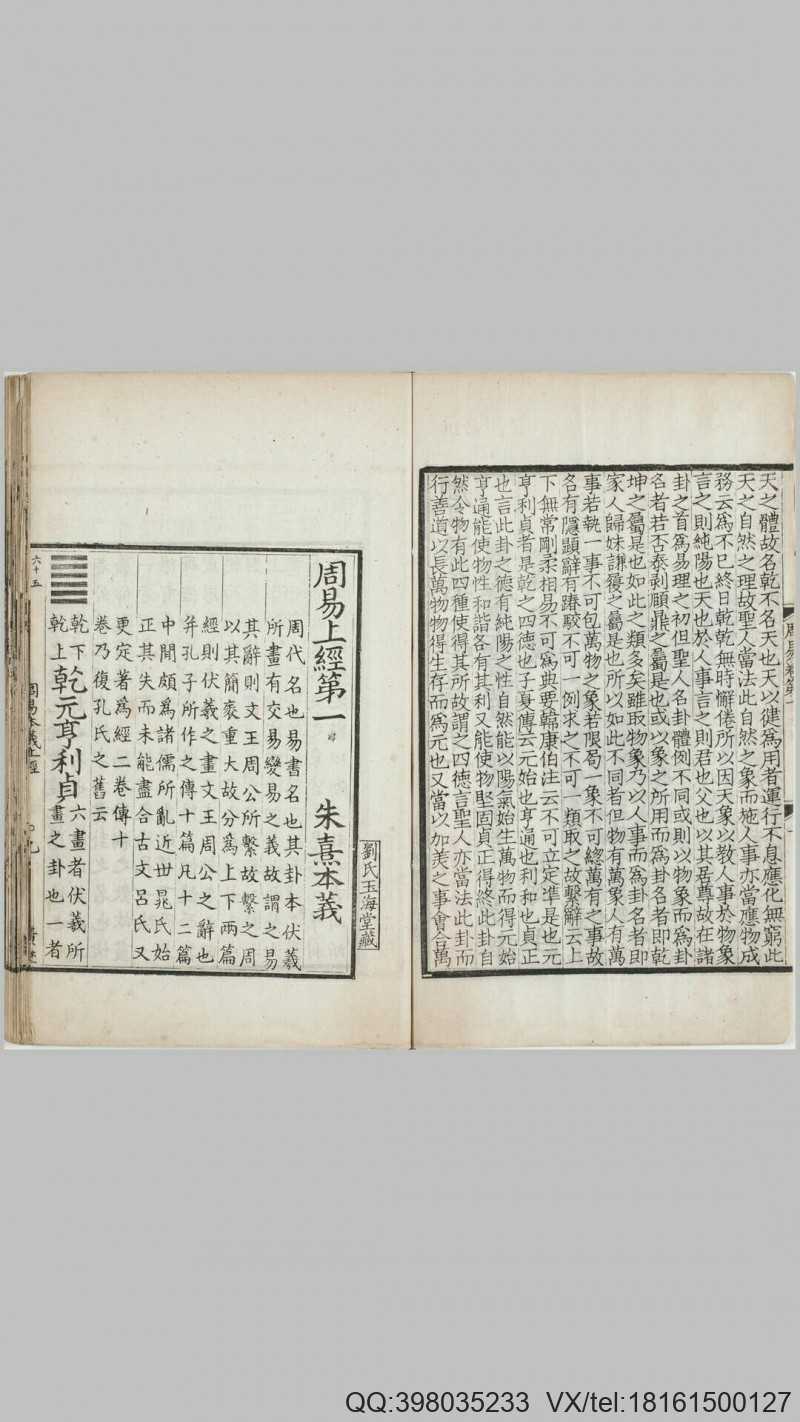 天之體故名乾不名天也天以健爲用者運行不息應化無窮此
天之自然之理故聖人當法此自然之象而施人事亦當應物成
務云爲不已終日乾乾無時懈倦所以因天象以教人事於物象
言之則純陽也天也於人事言之則君也父也以其居尊故在諸
卦之首爲易理之初但聖人名卦體例不同或則以物象而爲卦
名者若否泰剥頤鼎之屬是也或以象之所用而爲卦名者即乾
坤之屬是也如此之類多矣雖取物象乃以人事而爲卦名者即
家人歸妹謙履之屬是也所以如此不同者但物有萬象人有萬
事若執一事不可包萬物之象若限局一象不可緫萬有之事故
名有隱顯辭有踳駮不可一例求之不可一類取之故繫辭云上
下無常剛柔相易不可爲典要韓康伯注云不可立定凖是也元
亨利貞者是乾之四德也子夏傳云元始也亨通也利和也貞正
也言此卦之德有純陽之性自然能以陽氣始生萬物而得元始
亨通能使物性和諧各有其利又能使物堅固貞正得終此卦自
然令物有此四種使得其所故謂之四德言聖人亦當法此卦而
行善道以長萬物物得生存而爲元也又當以加美之事會合萬
劉氏玉海堂藏
周易上經第一
朱熹本義
周代名也易書名也其卦本伏羲
所畫有交易變易之義故謂之易
其辭則文王周公所繫故繫之周
以其簡袠重大故分爲上下兩篇
經則伏羲之畫文王周公之辭也
并孔子所作之傳十篇凡十二篇
中間頗爲諸儒所亂近世晁氏始
正其失而未能盡合古文呂氏又
更定著爲經二卷傳十
卷乃復孔氏之舊云
乾下
乾上
乾元亨利貞
六畫者伏羲所
畫之卦也一者
六十五
QQ:398035233 VX/tel:18161500127